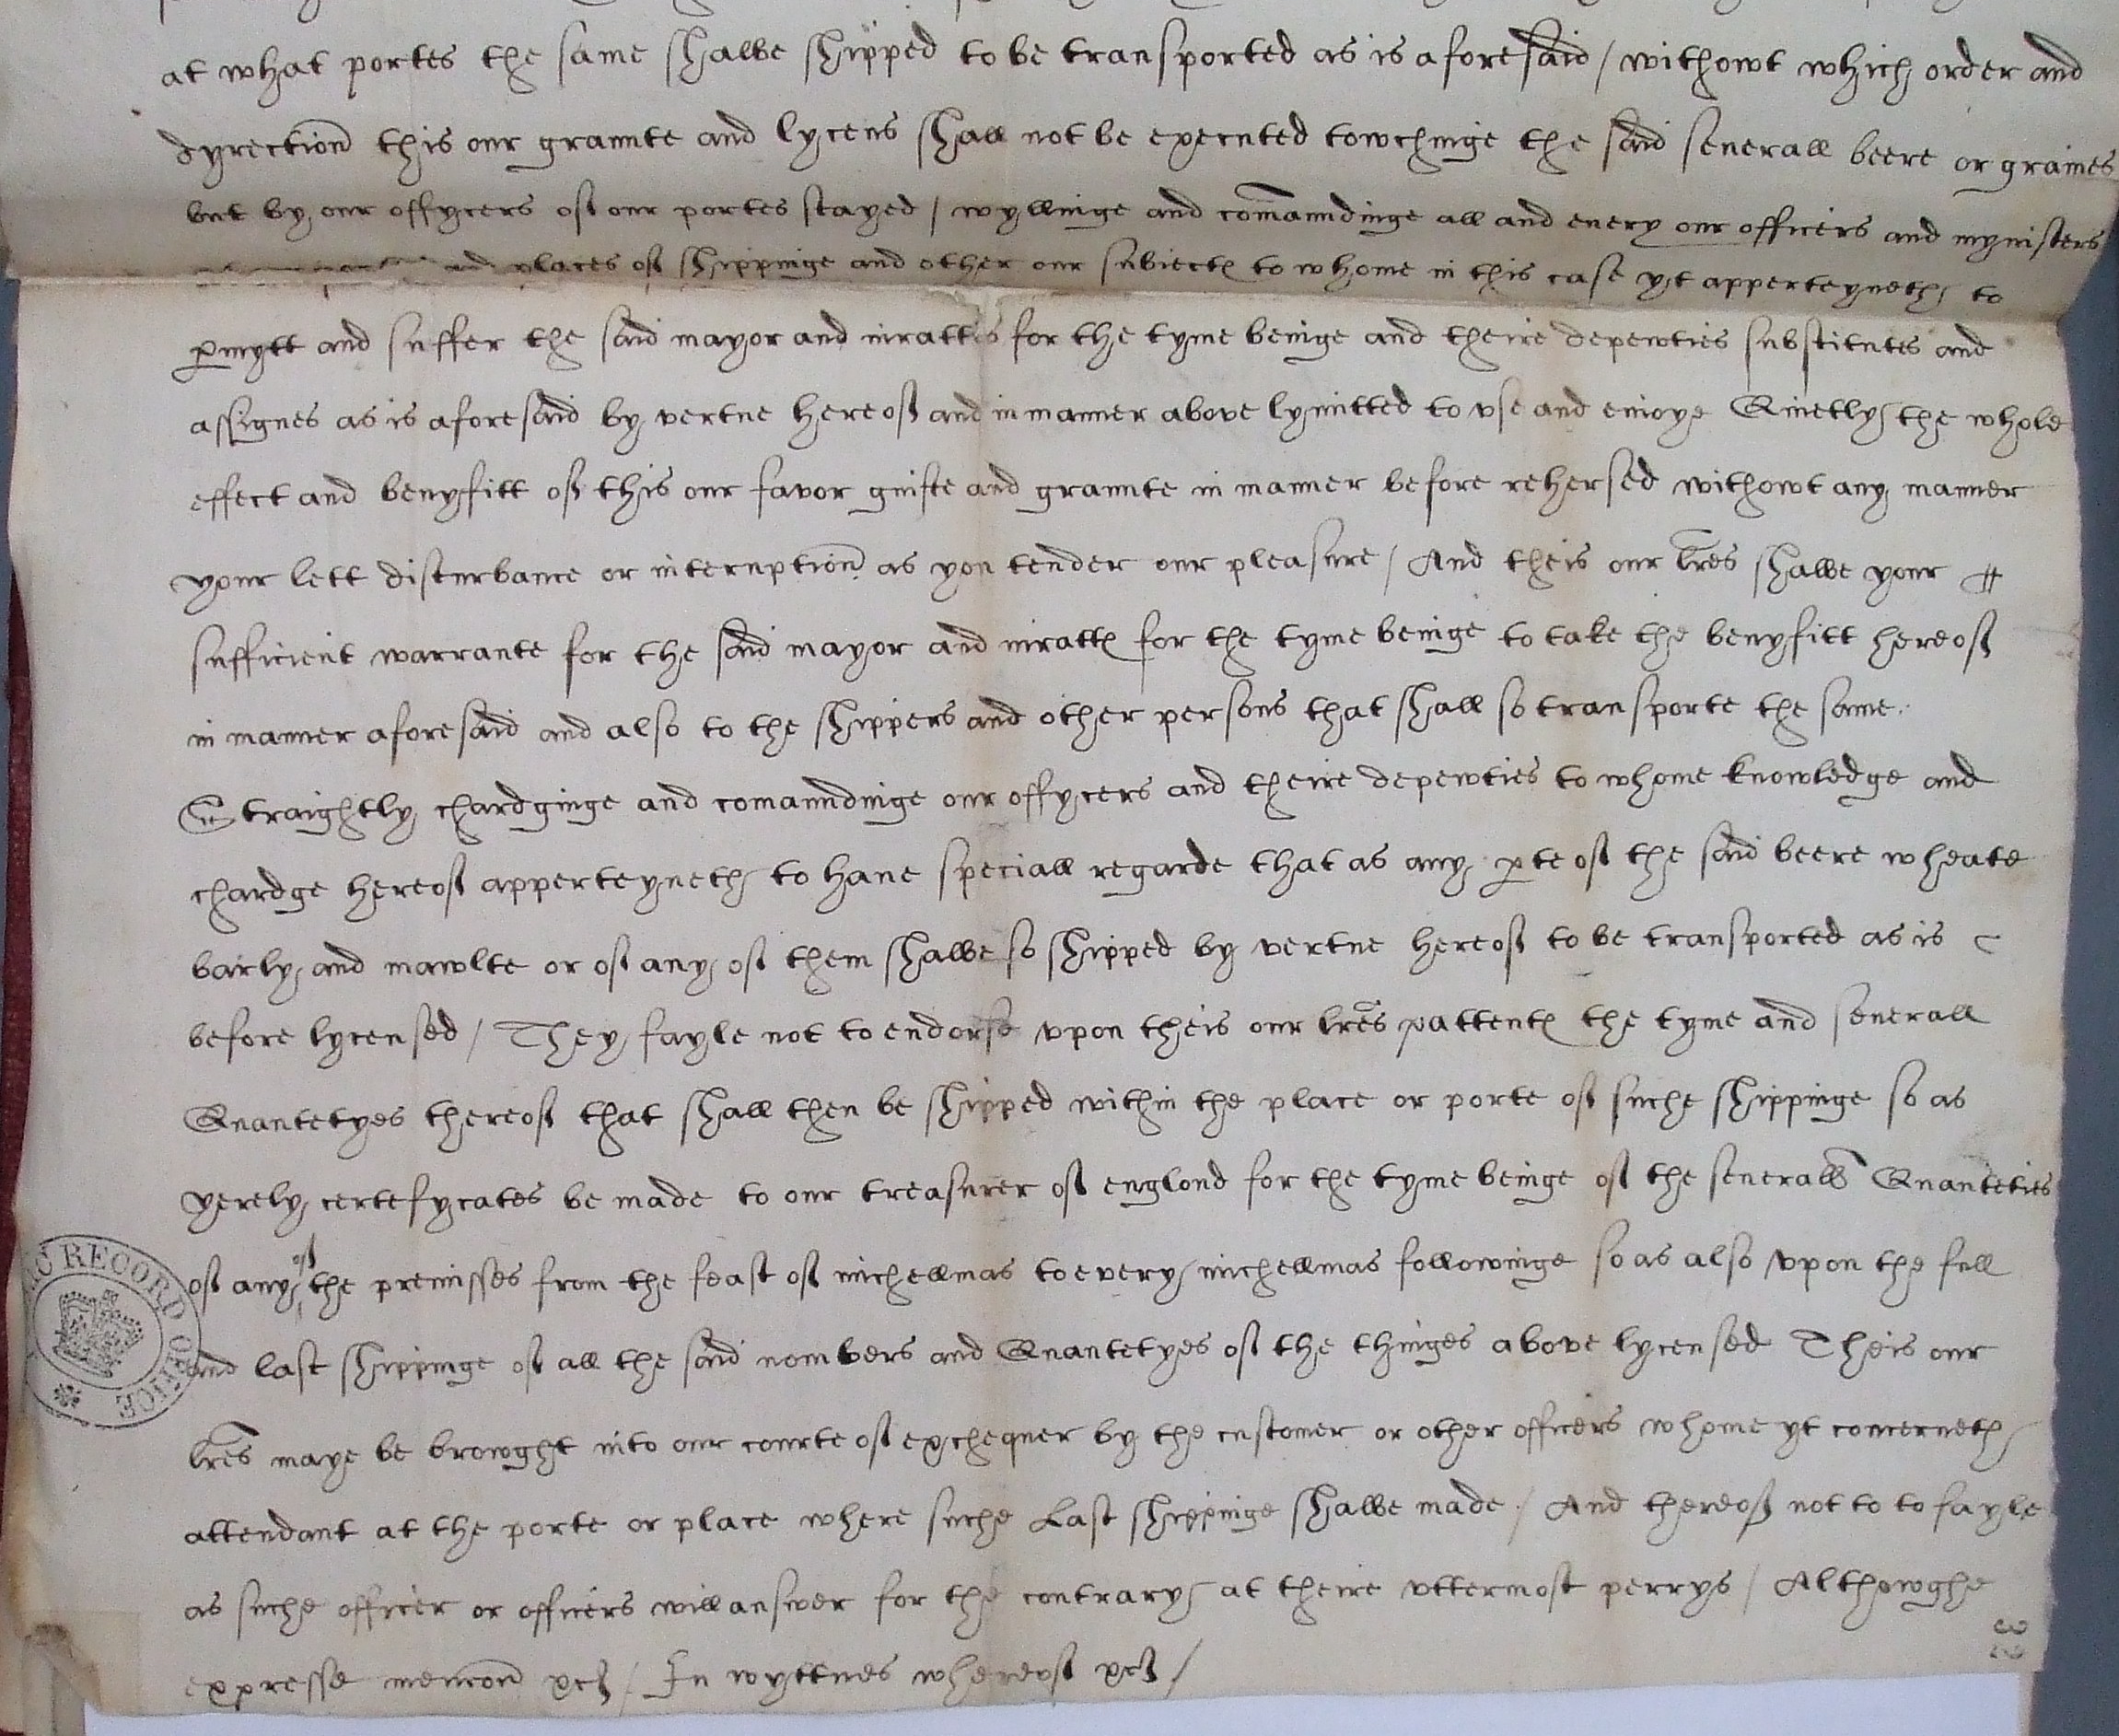 at what portes the same shalbe shipped to be transported as is aforesaid / withowt which order and
dyrection this our graunte and lycens shall not be executed towchinge the said seuerall beere or graines
but by our offycers of our portes stayed / wyllinge and comaundinge all and euery our officers and mynisters
and places of shippinge and other our subiectes to whome in this case yt apperteyneth to
pmytt and suffer the said mayor and iurattes for the tyme beinge and theire depewties substitutes and
assignes as is aforesaid by vertue hereof and in manner above lymitted to vse and enioye Quietly the whole
effect and benyfitt of this our favor guifte and graunte in manner before rehersed withowt any manner
your lett disturbance or interuption as you tender our pleasure / And theis our lres shalbe your
sufficient warrante for the said mayor and iurattes for the tyme beinge to take the benyfitt hereof
in manner aforesaid and also to the shippers and other persons that shall so transporte the same.
Straightly chardginge and comaundinge our offycers and theire depewties to whome knowledge and
chardge hereof apperteyneth to haue speciall regarde that as any pte of the said beere wheate
barly and mawlte or of any of them shalbe so shipped by vertue hereof to be transported as is
before lycensed / They fayle not to endorse vpon theis our lres pattentes the tyme and seuerall
Quantetyes thereof that shall then be shipped within the place or porte of suche shippinge so as
yerely certefycates be made to our treasurer of englond for the tyme beinge of the seuerall Quanteties
of any of the premisses from the feast of michellmas to every michellmas followinge so as also vpon the full
and last shippinge of all the said nombers and Quantetyes of the thinges above lycensed Theis our
lres maye be browght into our courte of exchequer by the customer or other officers whome yt concerneth
attendant at the porte or place where suche Last shippinge shalbe made / And thereof not to to fayle
as suche officer or officers will answer for the contrary at theire vttermost perrys / Althowghe
expresse mencon &c / In wyttnes whereof &c /
PUBLIC RECORD OFFICE